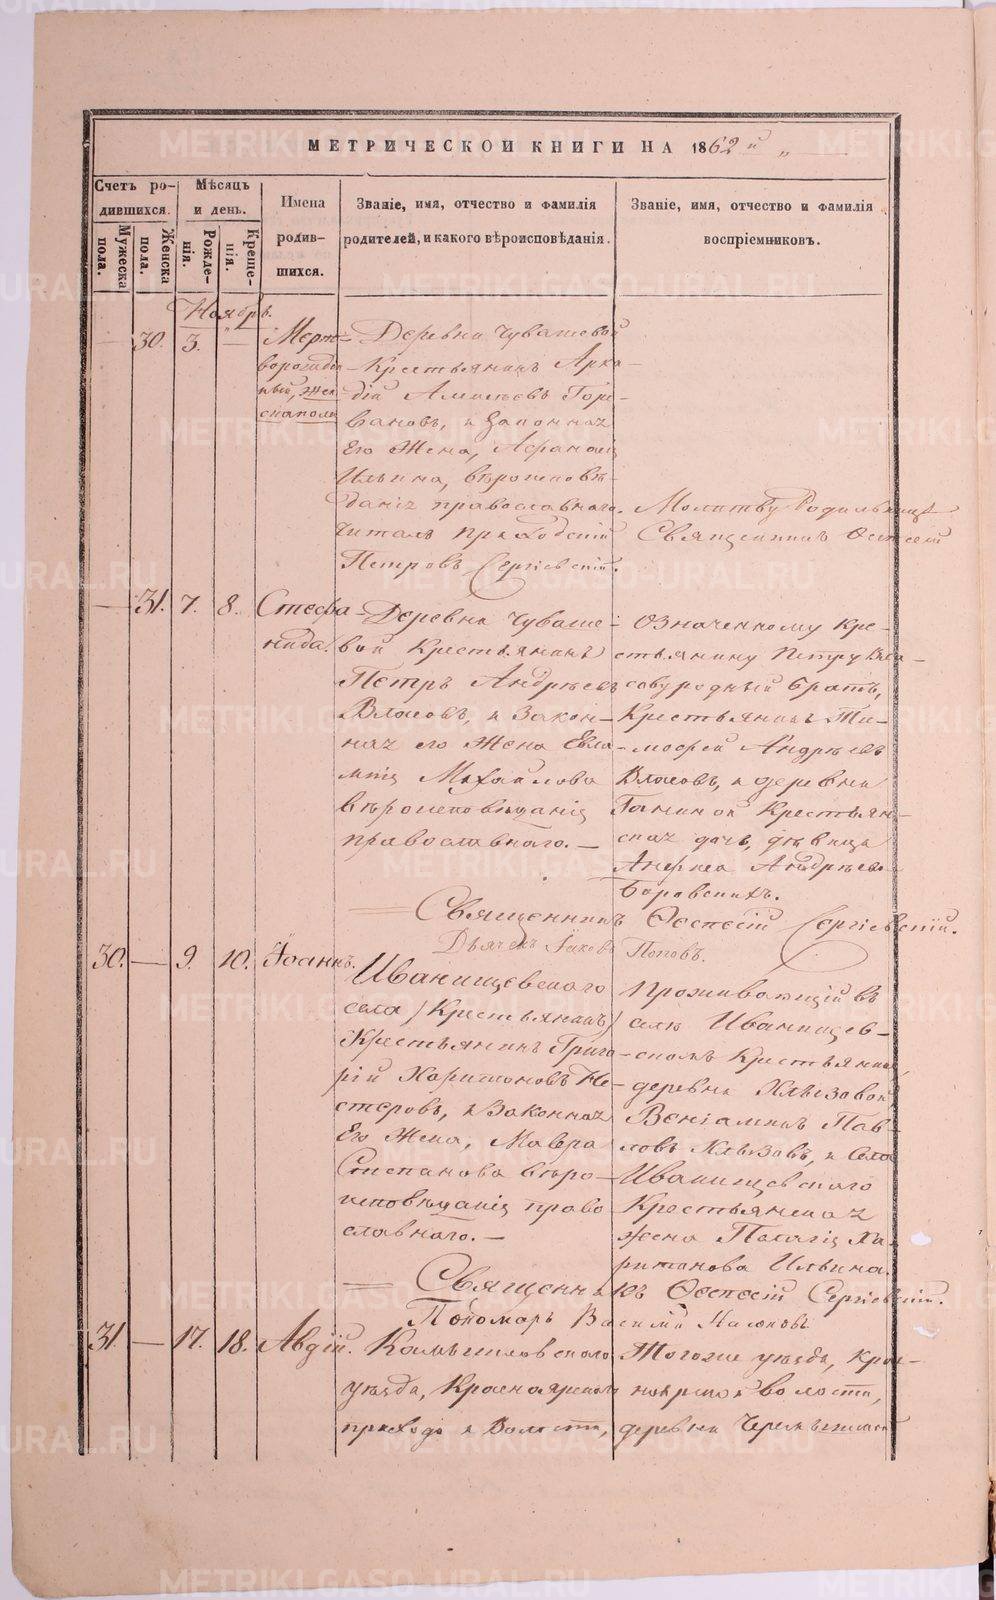 МЕТРИЧЕСКОЙ КНИГИ НА 1862 й
Счетъ ро-
дившихся.
Мѣсяцъ
и день.
Имена
родив-
шихся.
Званіе, имя, отчество и фамилія
родителей, и какого вѣроисповѣданія.
Званіе, имя, отчество и фамилія
воспріемниковъ.
Мужеска
пола.
Женска
пола.
Рожде-
нія.
Креще-
нія.
Ноябрь.
30.
3.
Мерт-
ворожден-
ный, жен-
ска пола
Деревни Чувашевой
Крестьянинъ Арка-
дій
вановъ, и Законная
Его Жена,
Ильина, вѣроисповѣ-
данія православнаго.
Читалъ Приходскій
Петровъ Сергіевскій.
Молитву Родильницѣ
Священникъ
31.
7.
8.
Стефа-
нида.
Деревни Чуваше-
вой Крестьянинъ
Петръ Андрѣевъ
Власовъ, и Закон-
ная его Жена Евла-
мпія Михайлова
вѣроисповѣданія
православнаго.
Означенному Кре-
стьянину Петру Вла-
сову родный братъ,
Крестьянинъ Ти-
мофей Андрѣевъ
Власовъ, и деревни
Ганиной Крестьян-
ская дочь, дѣвица
Анфиса Андрѣева
Боровскихъ.
Священникъ Сергіевскій.
Дьячекъ Іаковъ Поповъ.
30.
9.
10.
Іоаннъ.
Иванищевскаго
села (Крестьянинъ)
Крестьянинъ Григо-
рій Харитоновъ Не-
стеровъ, и Законная
Его Жена, Мавра
Степанова вѣро-
исповѣданія право
славнаго.
Проживающій въ
селѣ Иванищев-
скомъ Крестьянинъ,
деревни Хлызовой
Веніаминъ Пав-
ловъ Хлызовъ, и села
Иванищевскаго
Крестьянская
жена Пелагія Ха-
ритонова Ильина.
Священникъ Сергіевскій.
Пономарь Василій
31.
17.
18.
Авдій.
Камышловскаго
уѣзда, Красноярскаго
прихода и Волости,
Тогоже уѣзда, Крас-
ноярской волости,
деревни